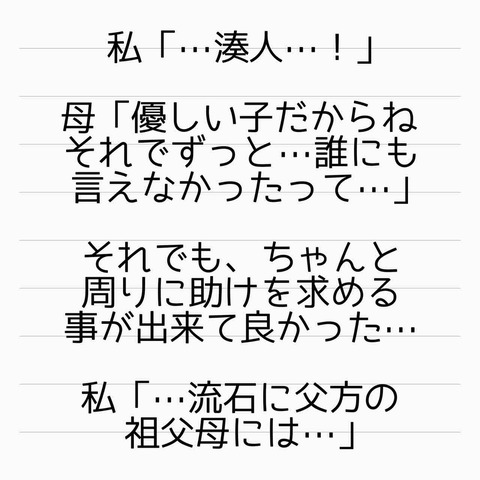 私「…湊人…！」
母「優しい子だからね
それでずっと…誰にも
言えなかったって…」
それでも、ちゃんと
周りに助けを求める
事が出来て良かった…
私「…流石に父方の
祖父母には…」